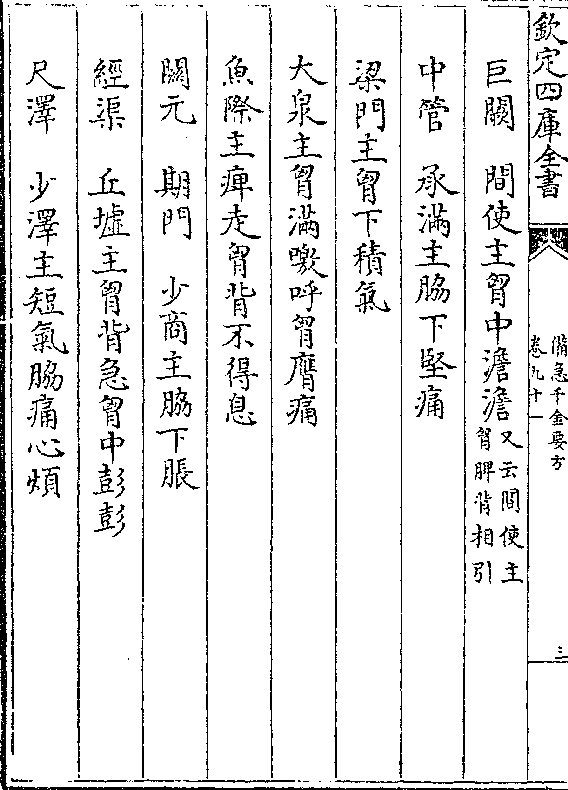 欽定四庫全書
備急千金要方
卷九十一
三
巨闕　間使主胷中澹澹又云間使主胷脾背相引
中管　承滿主脇下堅痛
梁門主胷下積氣
大泉主胷滿噭呼胷膺痛
魚際主痺走胷背不得息
關元　期門　少商主脇下脹
經渠　丘墟主胷背急胷中彭彭
尺澤　少澤主短氣脇痛心煩